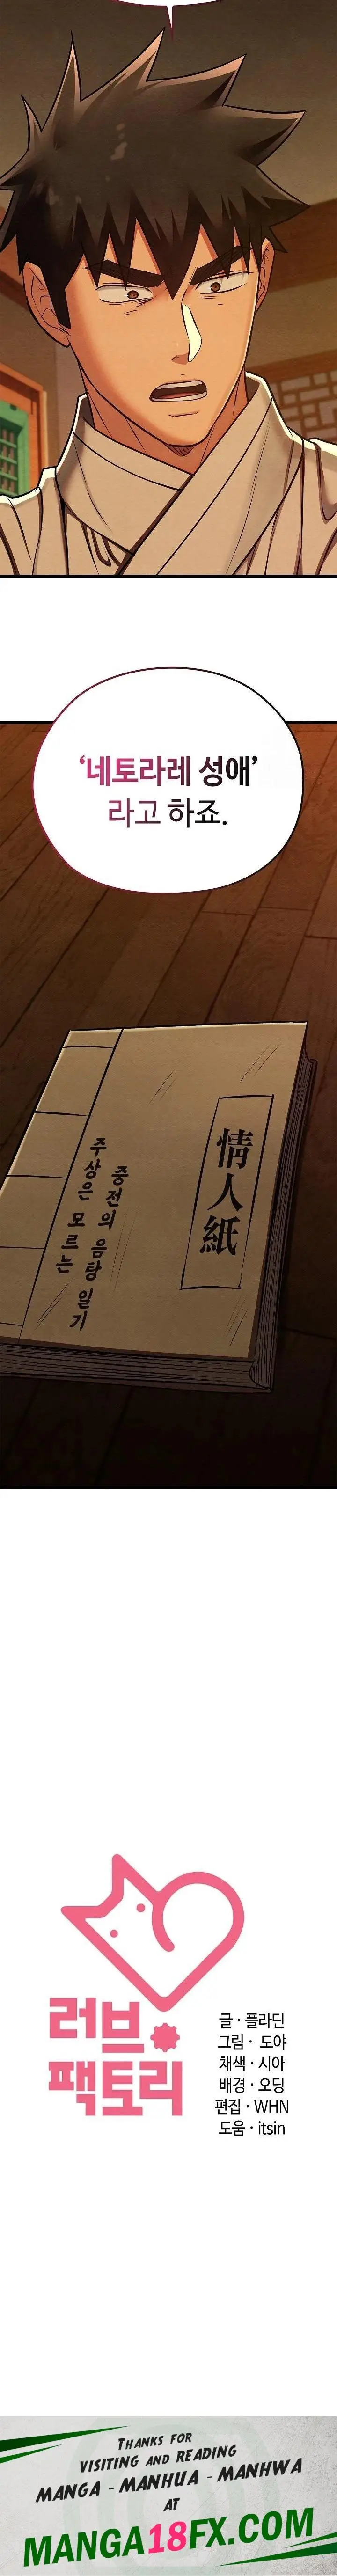 ‘네토라레 성애’
라고 하죠.
情人紙
중전의 음탕 일기
주상은 모르는
러브
팩토리
글 · 플라딘
그림 · 도야
채색 · 시아
배경 · 오딩
편집 · WHN
도움 · itsin
THANKS FOR
VISITING AND READING
MANGA - MANHUA - MANHWA
AT
MANGA18FX.COM